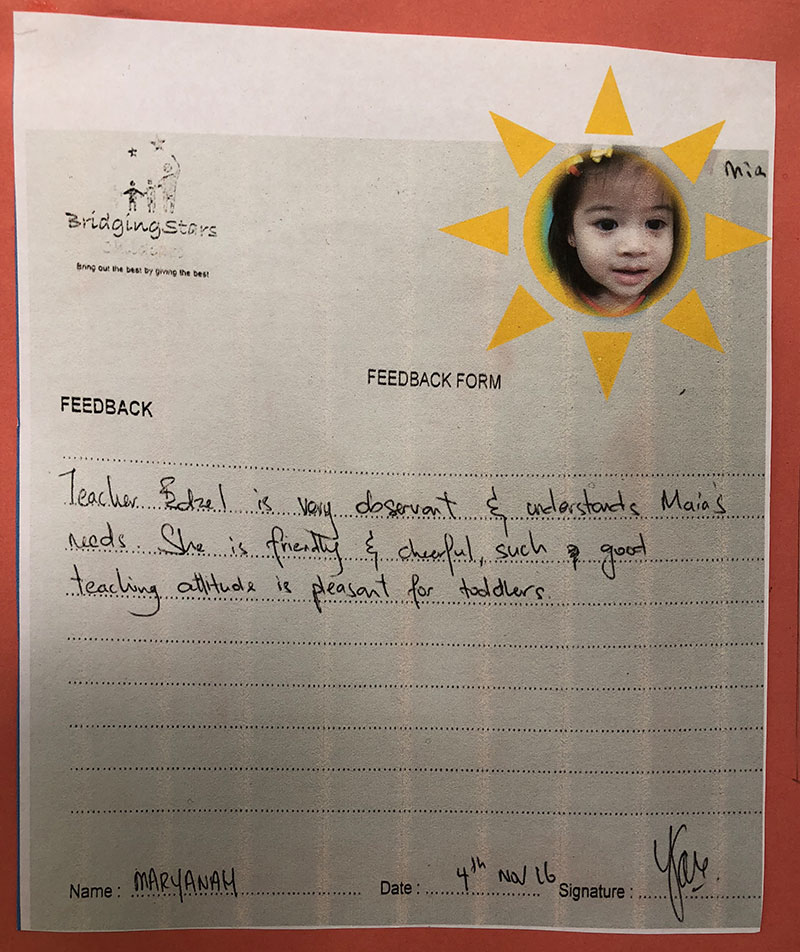 Mia
BridgingStars
Bring out the best by giving the best
FEEDBACK FORM
FEEDBACK
Teacher Edzel is very observant & understands Maia's
needs. She is friendly & cheerful, such good
teaching attitude is pleasant for toddlers.
Name : MARYANAH Date : 4th Nov 16 Signature :